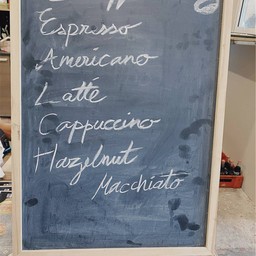 Espresso
Americano
Latté
Cappuccino
Hazelnut
Macchiato